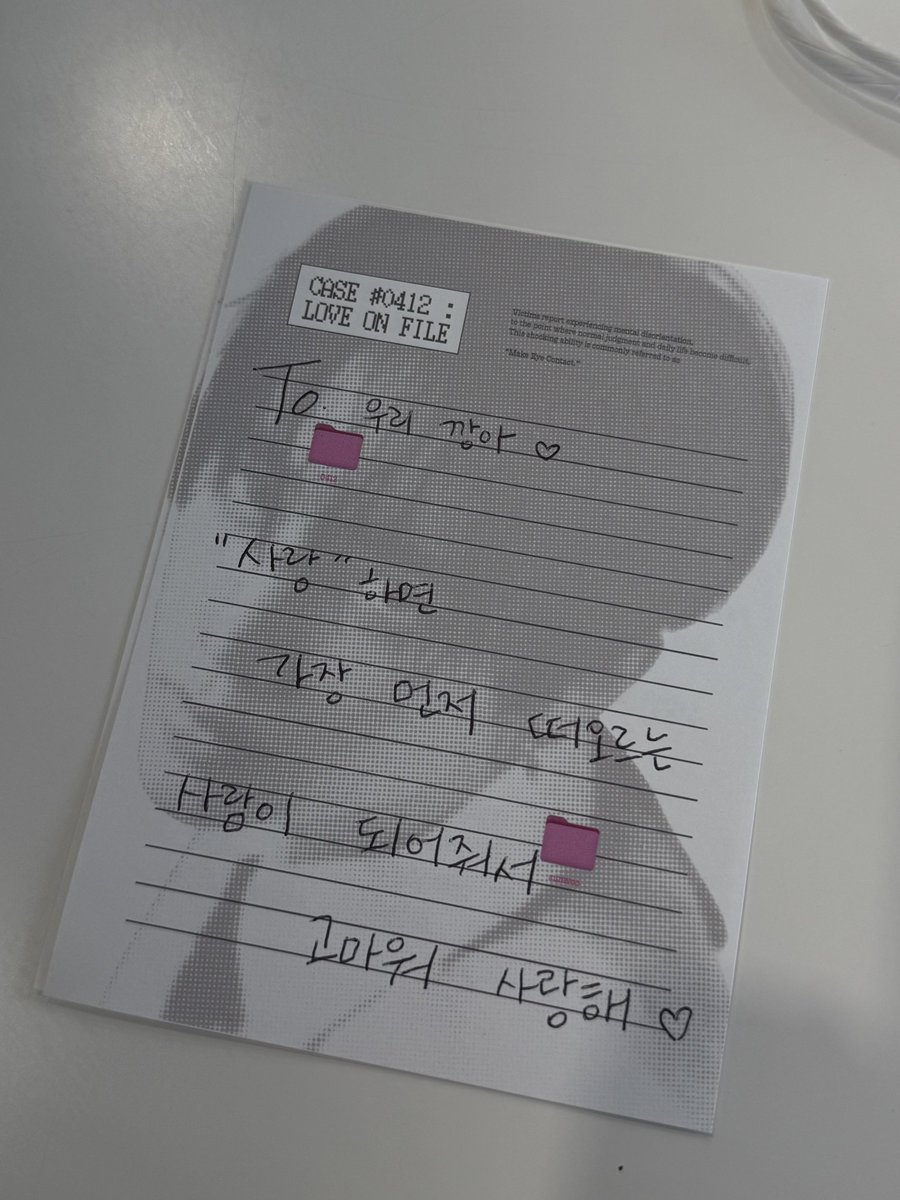 CASE #0412 :
LOVE ON FILE
Victims report experiencing mental disorientation,
to the point where normal judgment and daily life become difficult.
This shocking ability is commonly referred to as
"Make Eye Contact."
To. 우리 깡아 ♡
0412
"사랑" 하면
가장 먼저 떠오르는
사람이 되어줘서
고마워 사랑해 ♡